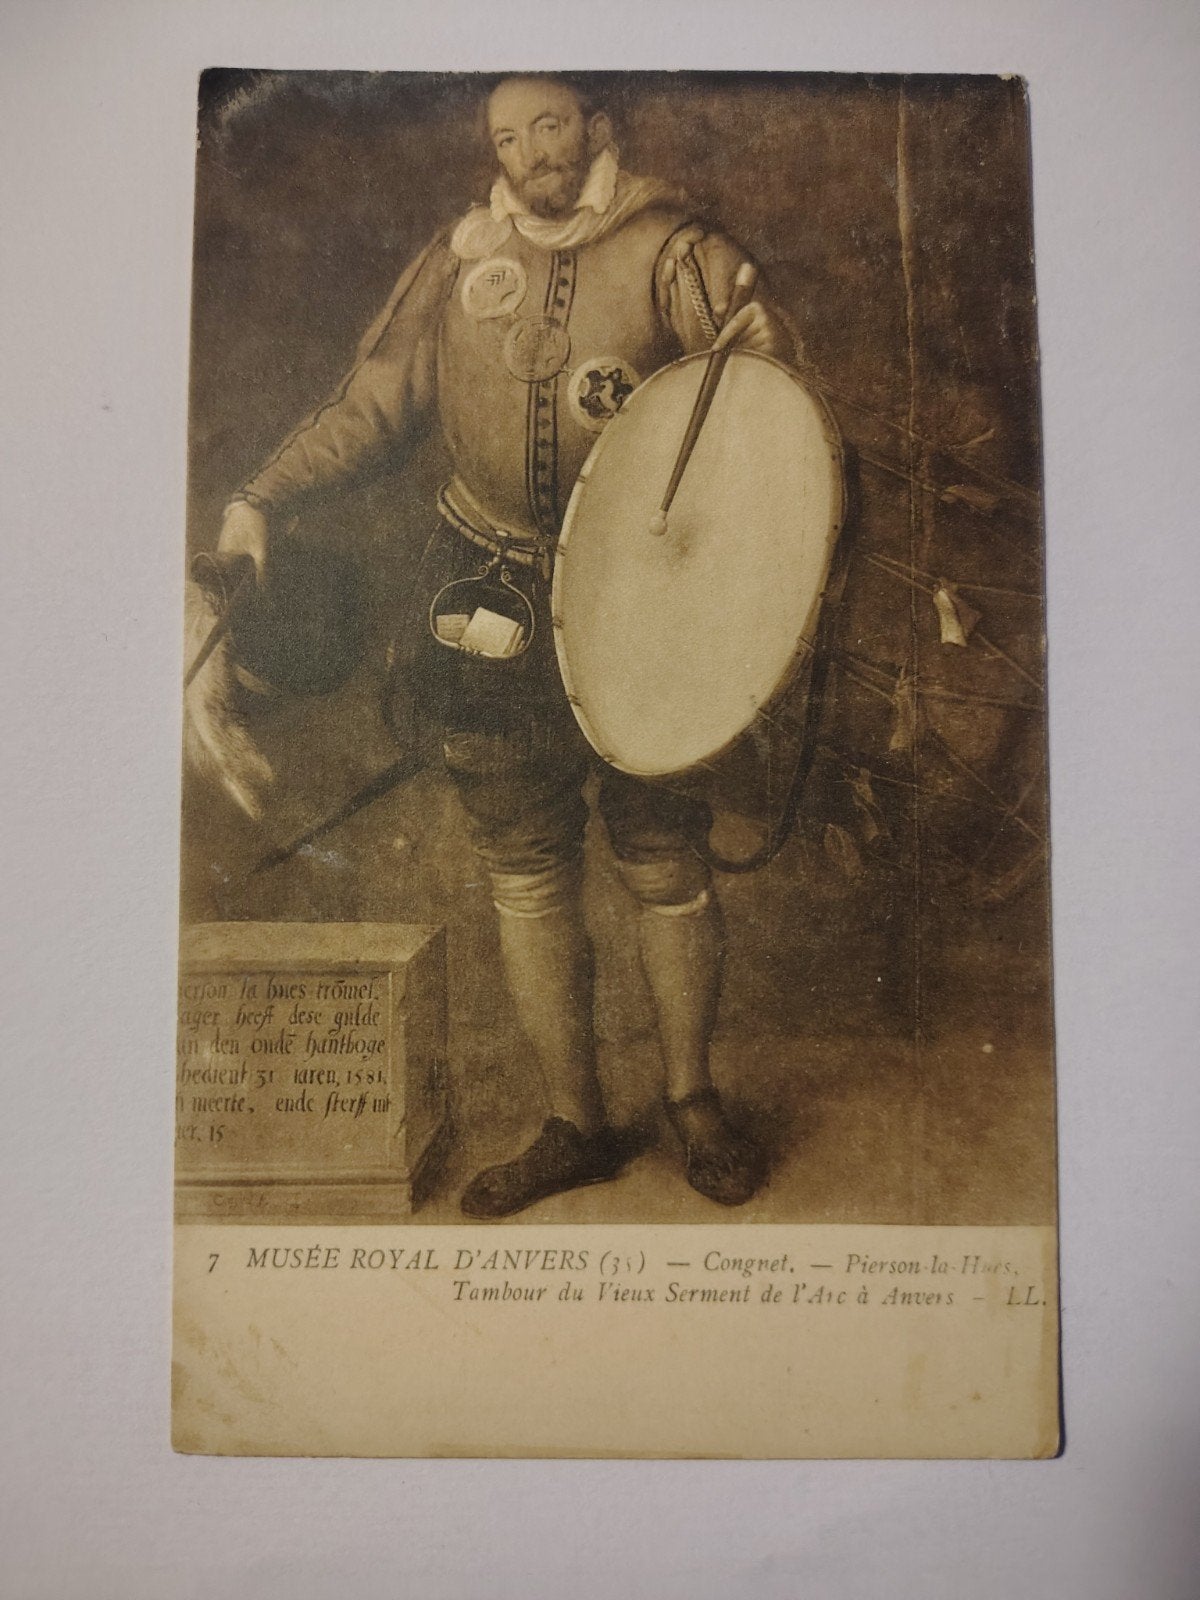 erson la hues trōmel.
ager heeft dese gulde
an den oudē hantboge
bedient 31 iaren, 1581,
n meerte, ende sterff int
aer, 15
7 MUSÉE ROYAL D'ANVERS (35) — Congnet. — Pierson-la-Hues,
Tambour du Vieux Serment de l'Arc à Anvers — LL.